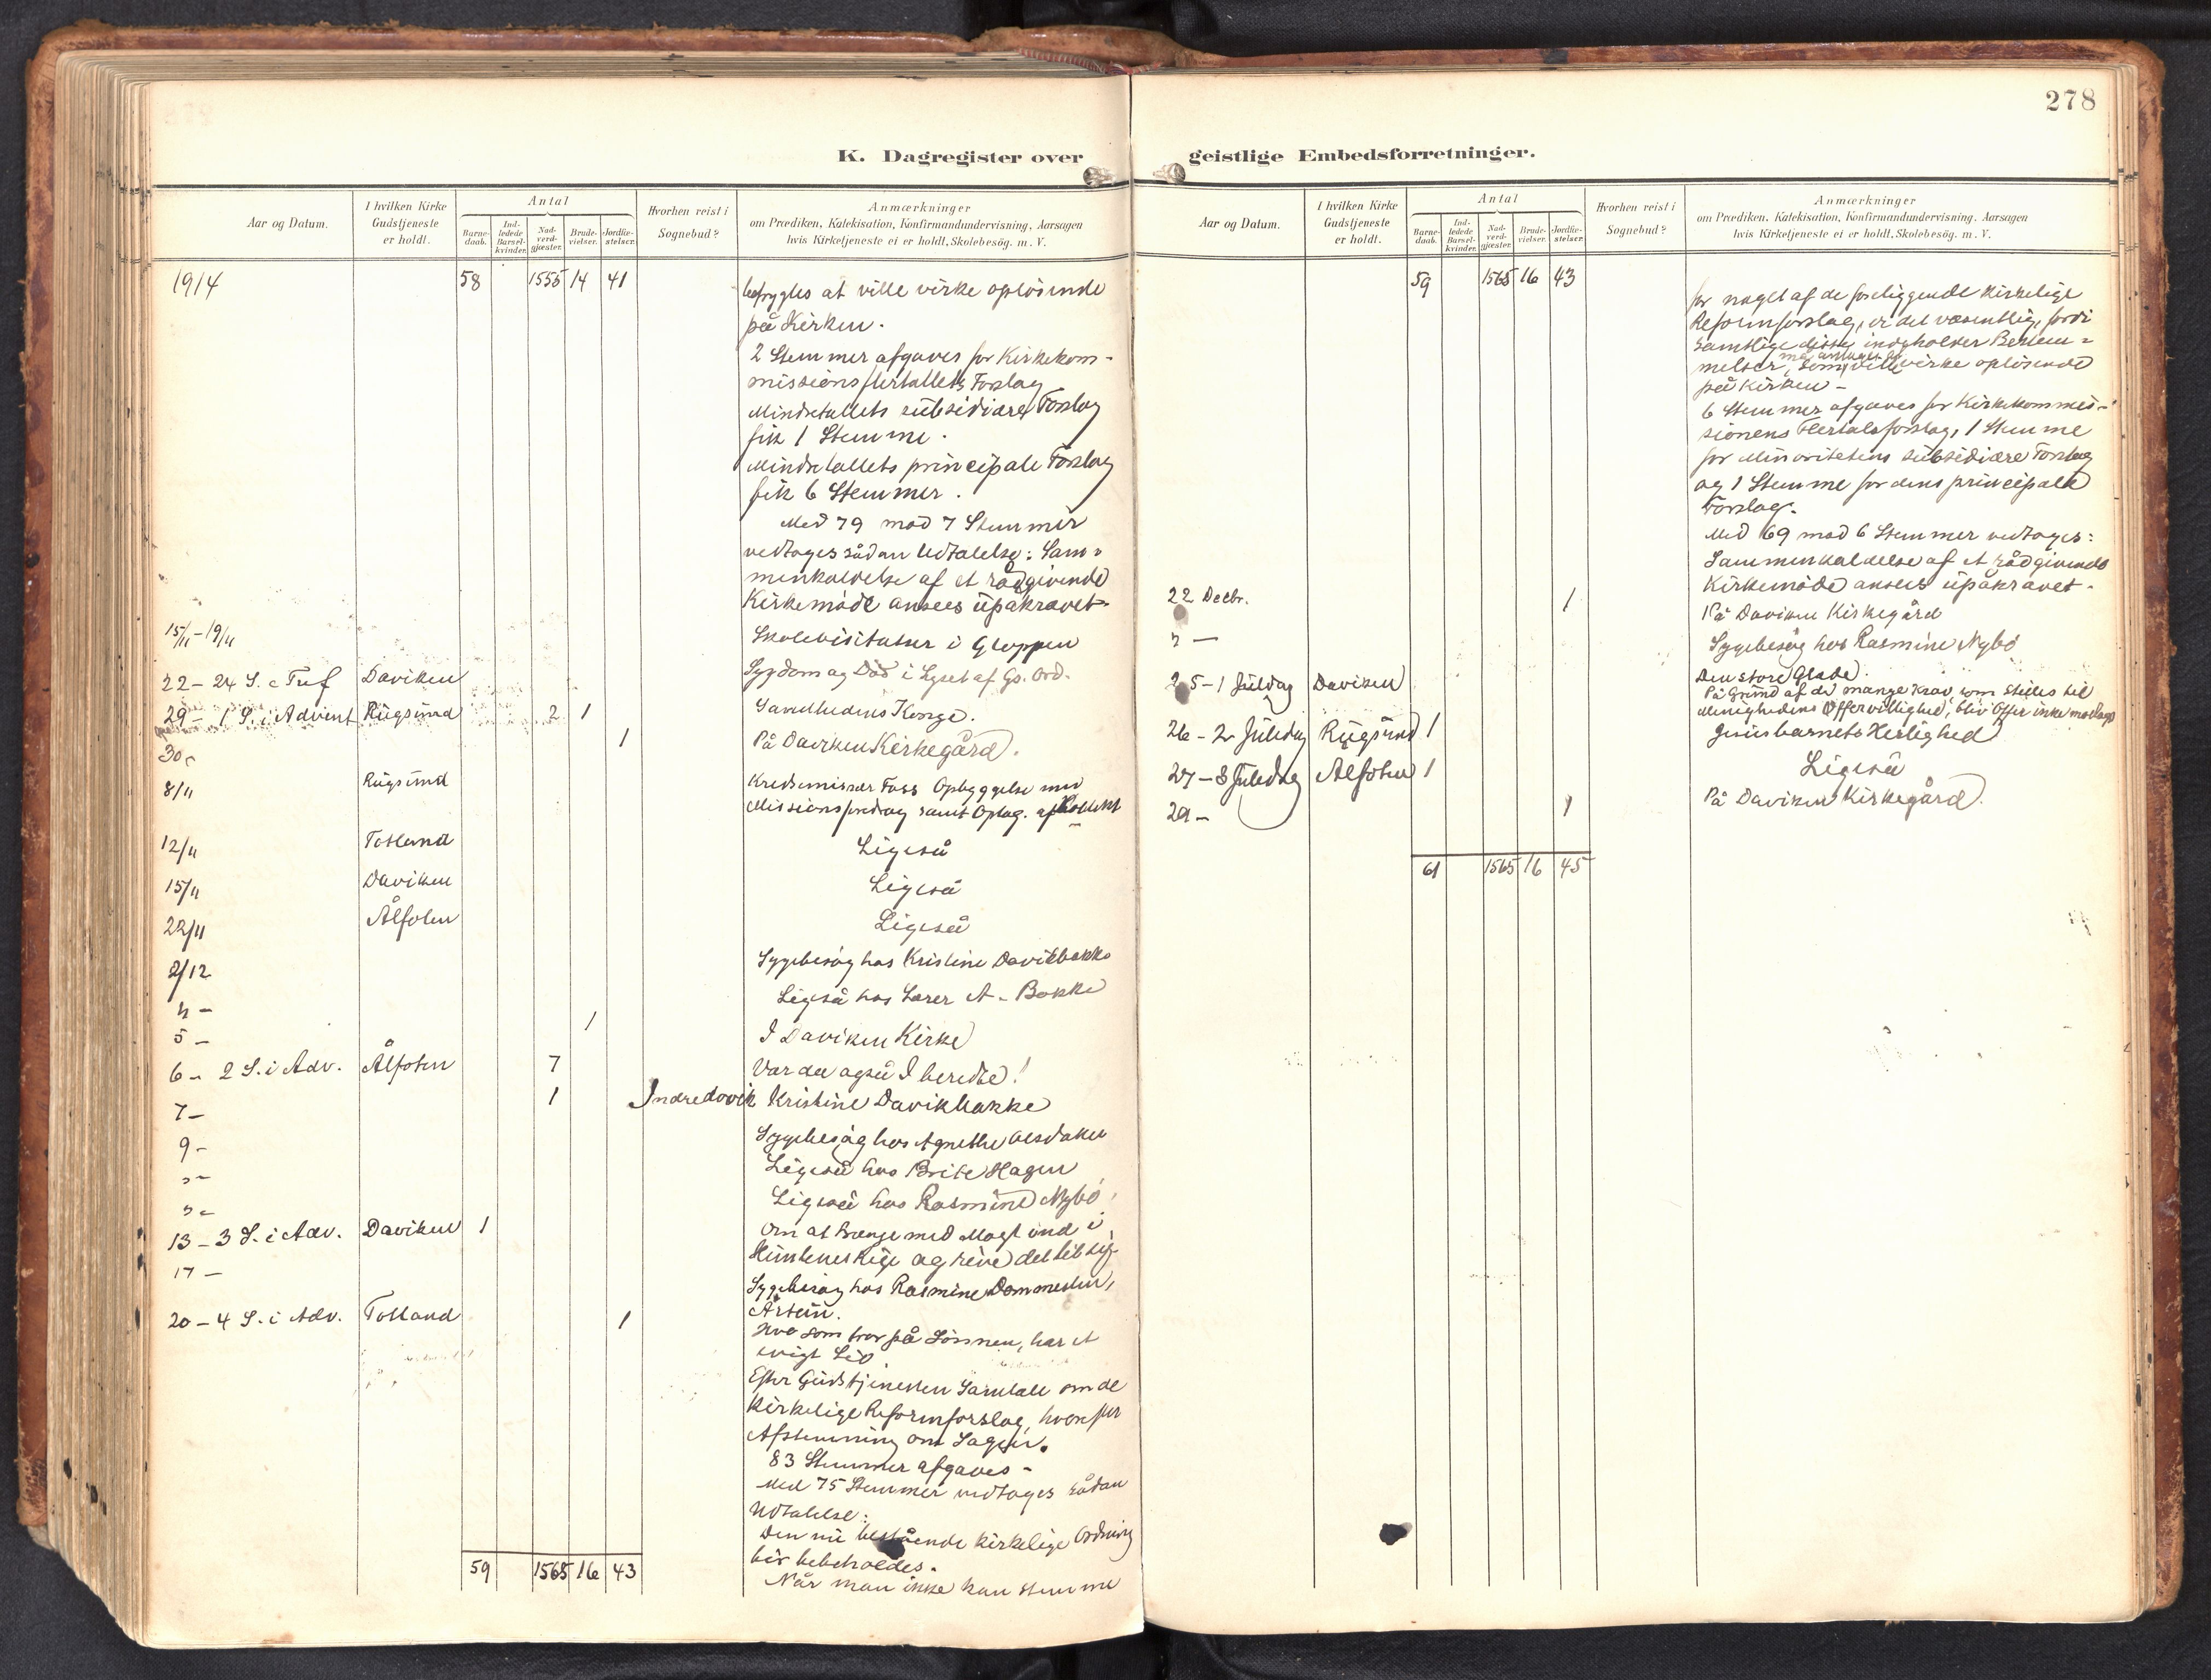 278
K. Dagregister over geistlige Embedsforretninger.
Aar og Datum.
I hvilken Kirke Gudstjeneste er holdt.
Antal
Barne-daab.
Ind-ledede Barsel-kvinder.
Nad-verd-gjæster.
Brude-vielser.
Jordfæ-stelser.
Hvorhen reist i Sognebud?
Anmærkninger
om Prædiken, Katekisation, Konfirmandundervisning, Aarsagen
hvis Kirketjeneste ei er holdt, Skolebesøg. m. V.
1914 58 1555 14 41
befrygtes at ville virke opløsende
på Kirken.
2 Stemmer afgaves for Kirkekom-
missionsflertallets Forslag
Mindretallets subsidiære Forslag
fik 1 Stemme.
Mindretallets principale Forslag
fik 6 Stemmer.
Med 79 mod 7 Stemmer
vedtoges sådan Udtalelse: Sam-
menkaldelse af et rådgivende
Kirkemøde ansees upåkrævet.
15/11-19/11 Skolevisitatser i Gloppen
22- 24 S. e Tref Daviken Sygdom og Død i Lyset af Gs. Ord.
29- 1 S. i Advent Rugsund 2 1 Sandhedens Konge.
30- 1 På Daviken Kirkegård.
8/11 Rugsund Kredsmissær Foss Opbyggelse med
Missionsforedrag samt Optag. af Kollekt
12/11 Totland Ligeså
15/11 Daviken Ligeså
22/11 Ålfoten Ligeså
2/12 Sygebesøg hos Kristine Davikbakke
4- Ligeså hos Lærer A. Bakke
5- 1 I Daviken Kirke
6- 2 S. i Adv. Ålfoten 7 Vær der også I beredte!
7- 1 Indredavik Kristine Davikbakke
9- Sygebesøg hos Agnethe
"- Ligeså hos Brite Hagen
"- Ligeså hos Rasmine Nybø
13- 3 S. i Adv. Daviken 1 Om at trænge med Magt ind i
Himlenes Rige og rive det til sig
17- Sygebesøg hos Rasmine Dommesten,
20- 4 S. i Adv. Totland 1 Hvo som tror på Sønnen, har et
evigt Liv
Efter Gudstjenesten Samtale om de
kirkelige Reformforslag, hvorefter
Afstemning om Sagen.
83 Stemmer afgaves-
Med 75 Stemmer vedtoges sådan
Udtalelse:
Den nu bestående kirkelige Ordning
bør bebeholdes.
Når man ikke kan stemme
59 1565 16 43
Aar og Datum.
I hvilken Kirke Gudstjeneste er holdt.
Antal
Barne-daab.
Ind-ledede Barsel-kvinder.
Nad-verd-gjæster.
Brude-vielser.
Jordfæ-stelser.
Hvorhen reist i Sognebud?
Anmærkninger
om Prædiken, Katekisation, Konfirmandundervisning, Aarsagen
hvis Kirketjeneste ei er holdt, Skolebesøg. m. V.
59 1565 16 43
for noget af de foreliggende kirkelige
Reformforslag, er det væsentlig, fordi
samtlige disse indeholder Bestem-
melser, som må antages at ville virke opløsende
på Kirken-
6 Stemmer afgaves for Kirkekommis-
sionens Flertalsforslag, 1 Stemme
for Minoritetens subsidiære Forslag
og 1 Stemme for dens principale
Forslag.
Med 69 mod 6 Stemmer vedtoges:
Sammenkaldelse af et rådgivende
Kirkemøde ansees upåkrævet.
22 Decbr. 1 På Daviken Kirkegård
"- Sygebesøg hos Rasmine Nybø
25-1 Juledag Daviken Den store Glæde.
På Grund af de mange Krav, som stilles til
Menighedens Offervillighed, blev Offer ikke modtaget
26- 2 Juledag Rugsund 1 Jesusbarnets Herlighed
27- 3 Juledag Ålfoten 1 Ligeså
29- 1 På Daviken Kirkegård.
61 1565 16 45